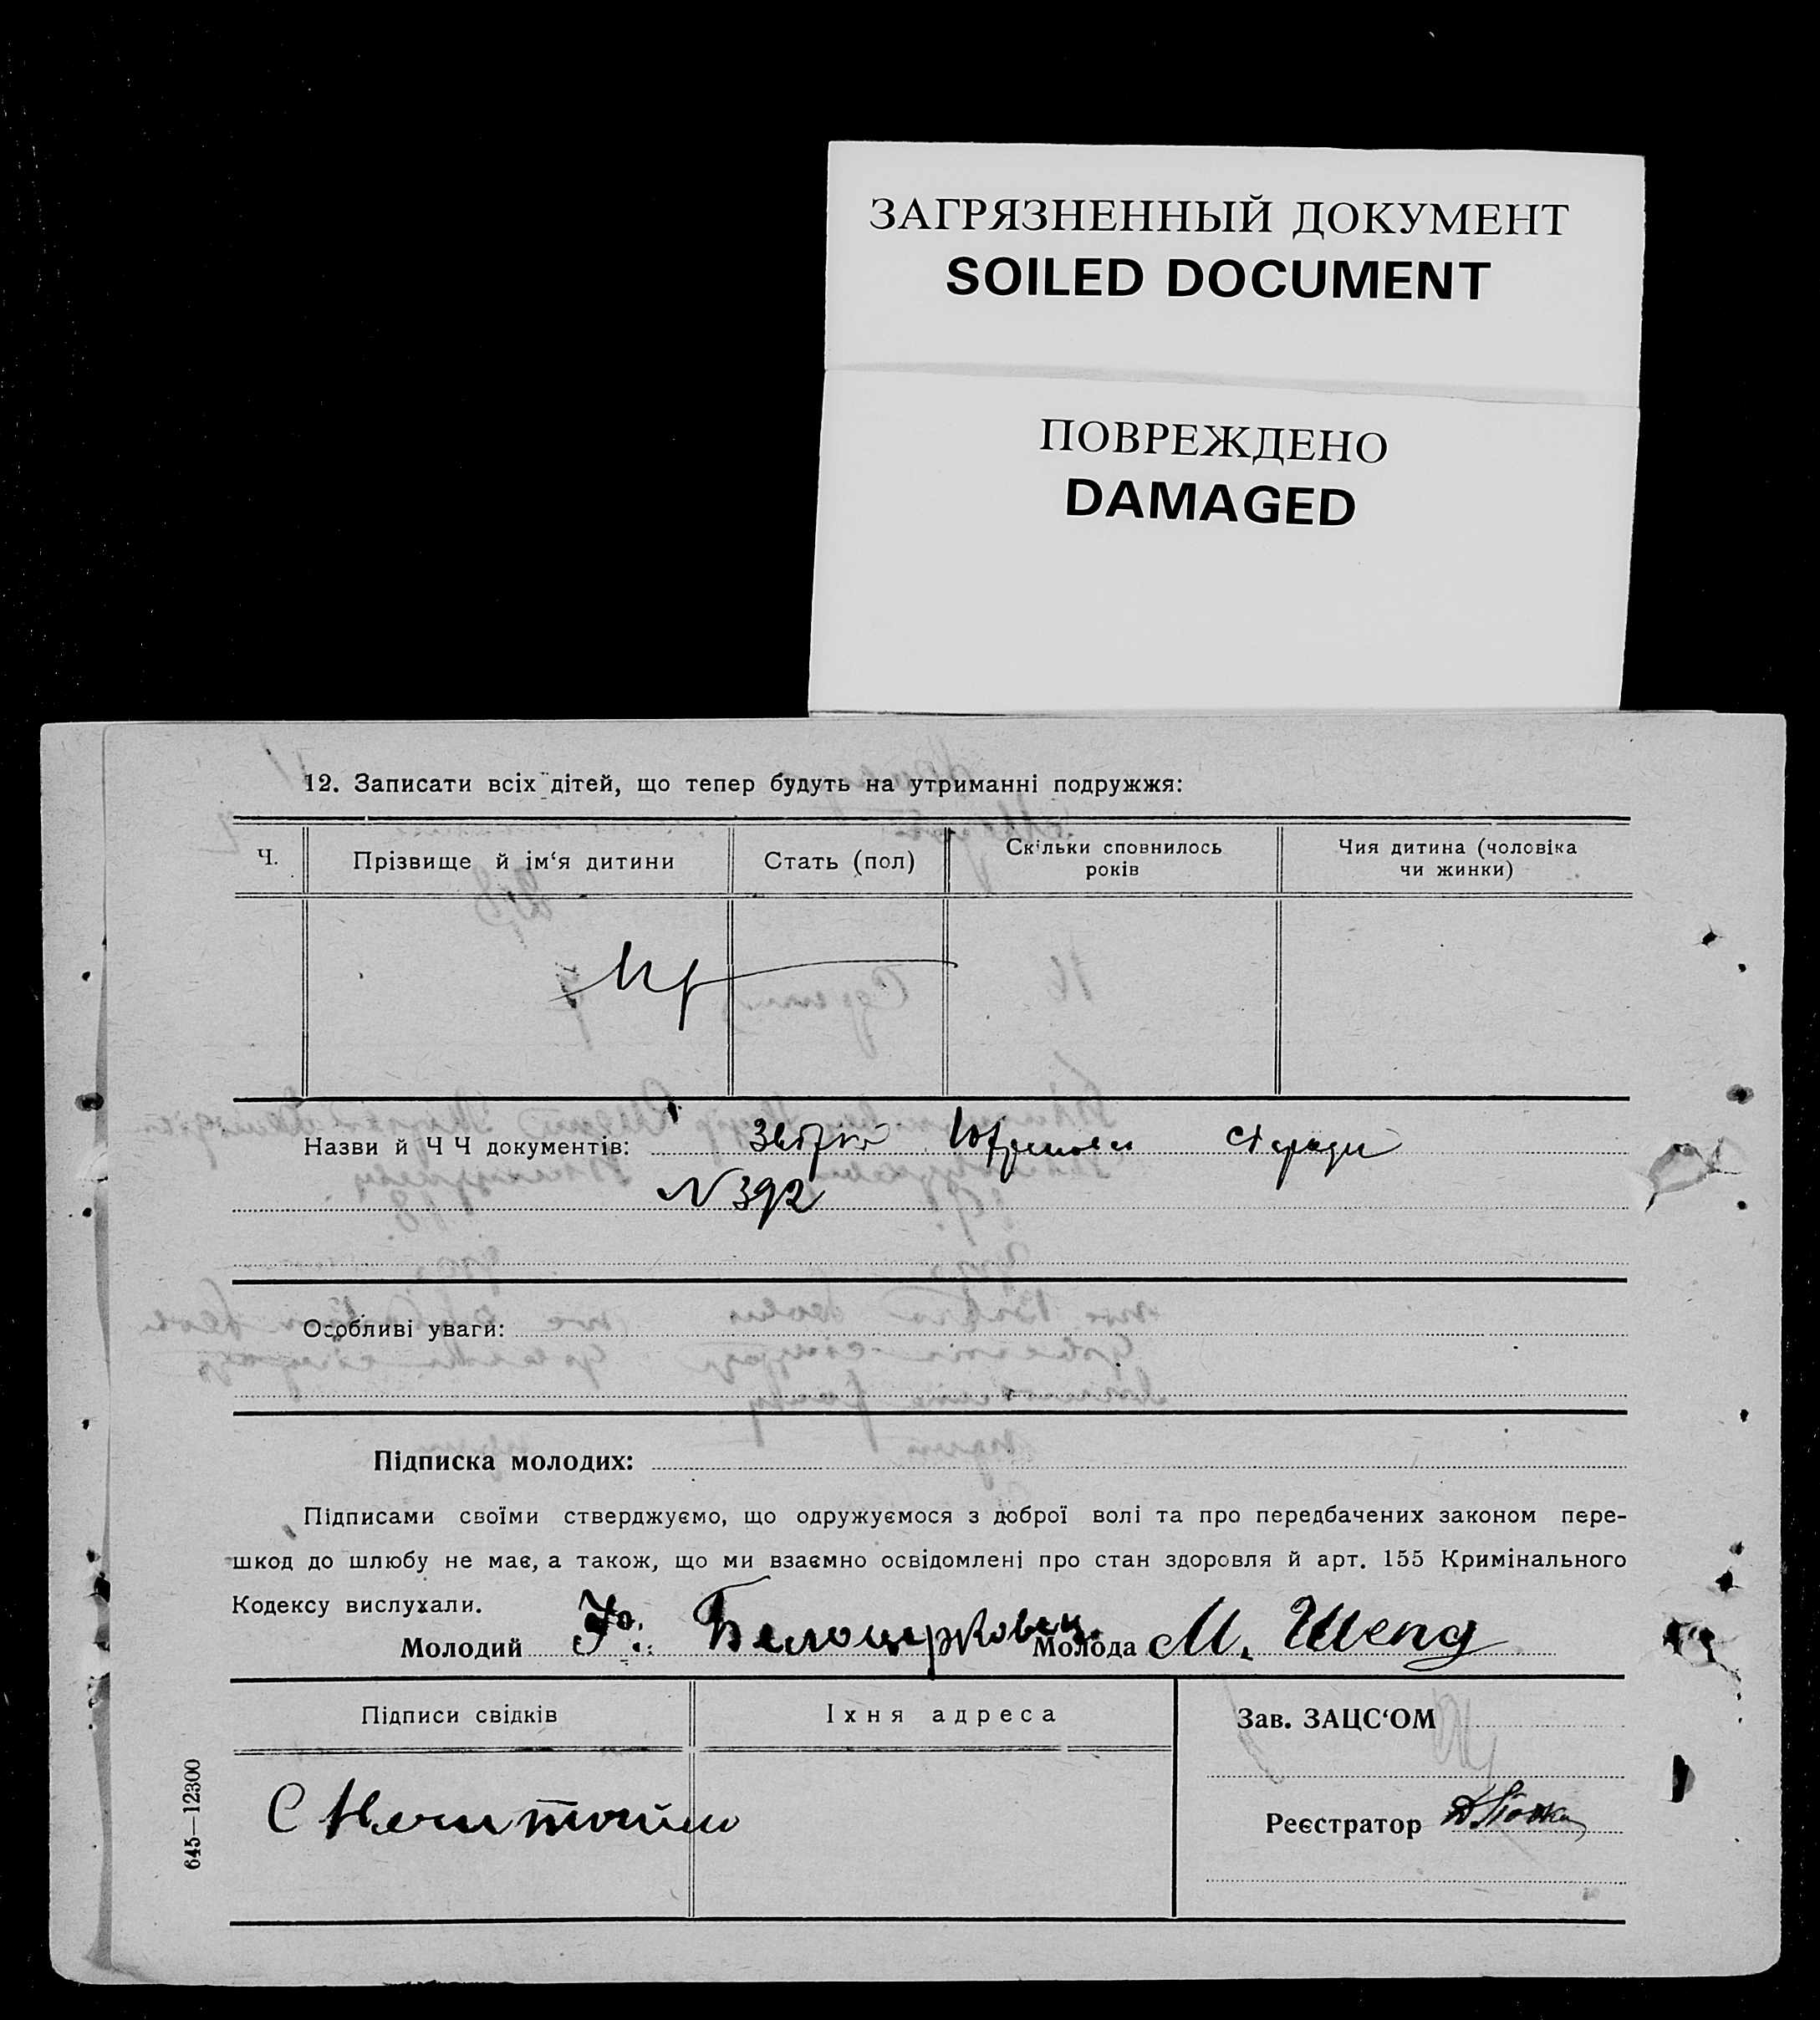 ЗАГРЯЗНЕННЫЙ ДОКУМЕНТ
SOILED DOCUMENT
ПОВРЕЖДЕНО
DAMAGED
12. Записати всіх дітей, що тепер будуть на утриманні подружжя:
Ч.
Прізвище й ім‘я дитини
Стать (пол)
Скільки сповнилось
років
Чия дитина (чоловіка
чи жинки)
Назви й Ч Ч документів:
№ 392
Особливі уваги:
Підписка молодих:
Підписами своїми стверджуємо, що одружуємося з доброї волі та про передбачених законом пере-
шкод до шлюбу не має, а також, що ми взаємно освідомлені про стан здоровля й арт. 155 Кримінального
Кодексу вислухали.
Молодий Белоцерковец. Молода М. Шепд
Підписи свідків
Їхня адреса
Зав. ЗАЦС‘ОМ
Реєстратор
645—12300